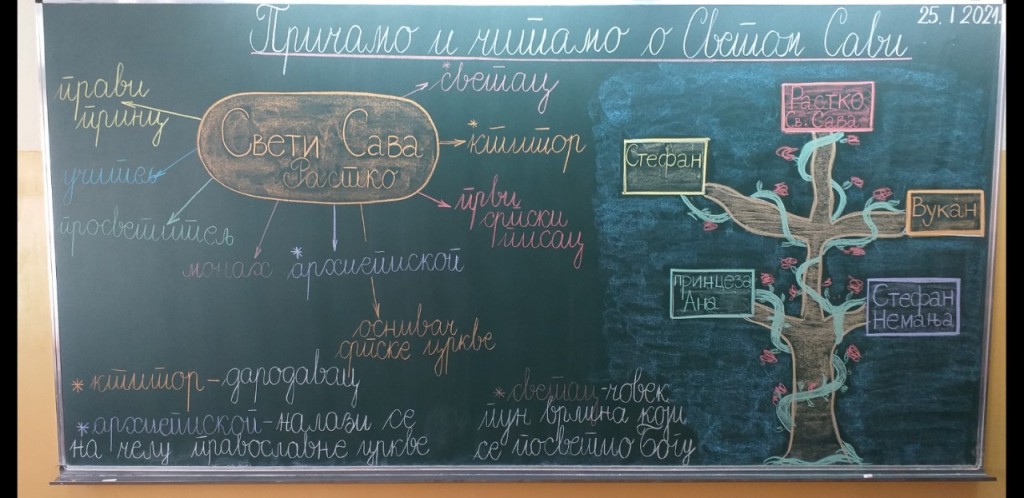 25. I 2021.
Причамо и читамо о Светом Сави
прави
принц
*светац
Свети Сава
Растко
*ктитор
учитељ
први
српски
писац
просветитељ
монах
*архиепископ
оснивач
српске цркве
*ктитор - дародавац
*архиепископ - налази се
на челу православне цркве
*светац - човек
пун врлина који
се посветио Богу
Растко
Св. Сава
Стефан
Вукан
принцеза
Ана
Стефан
Немања